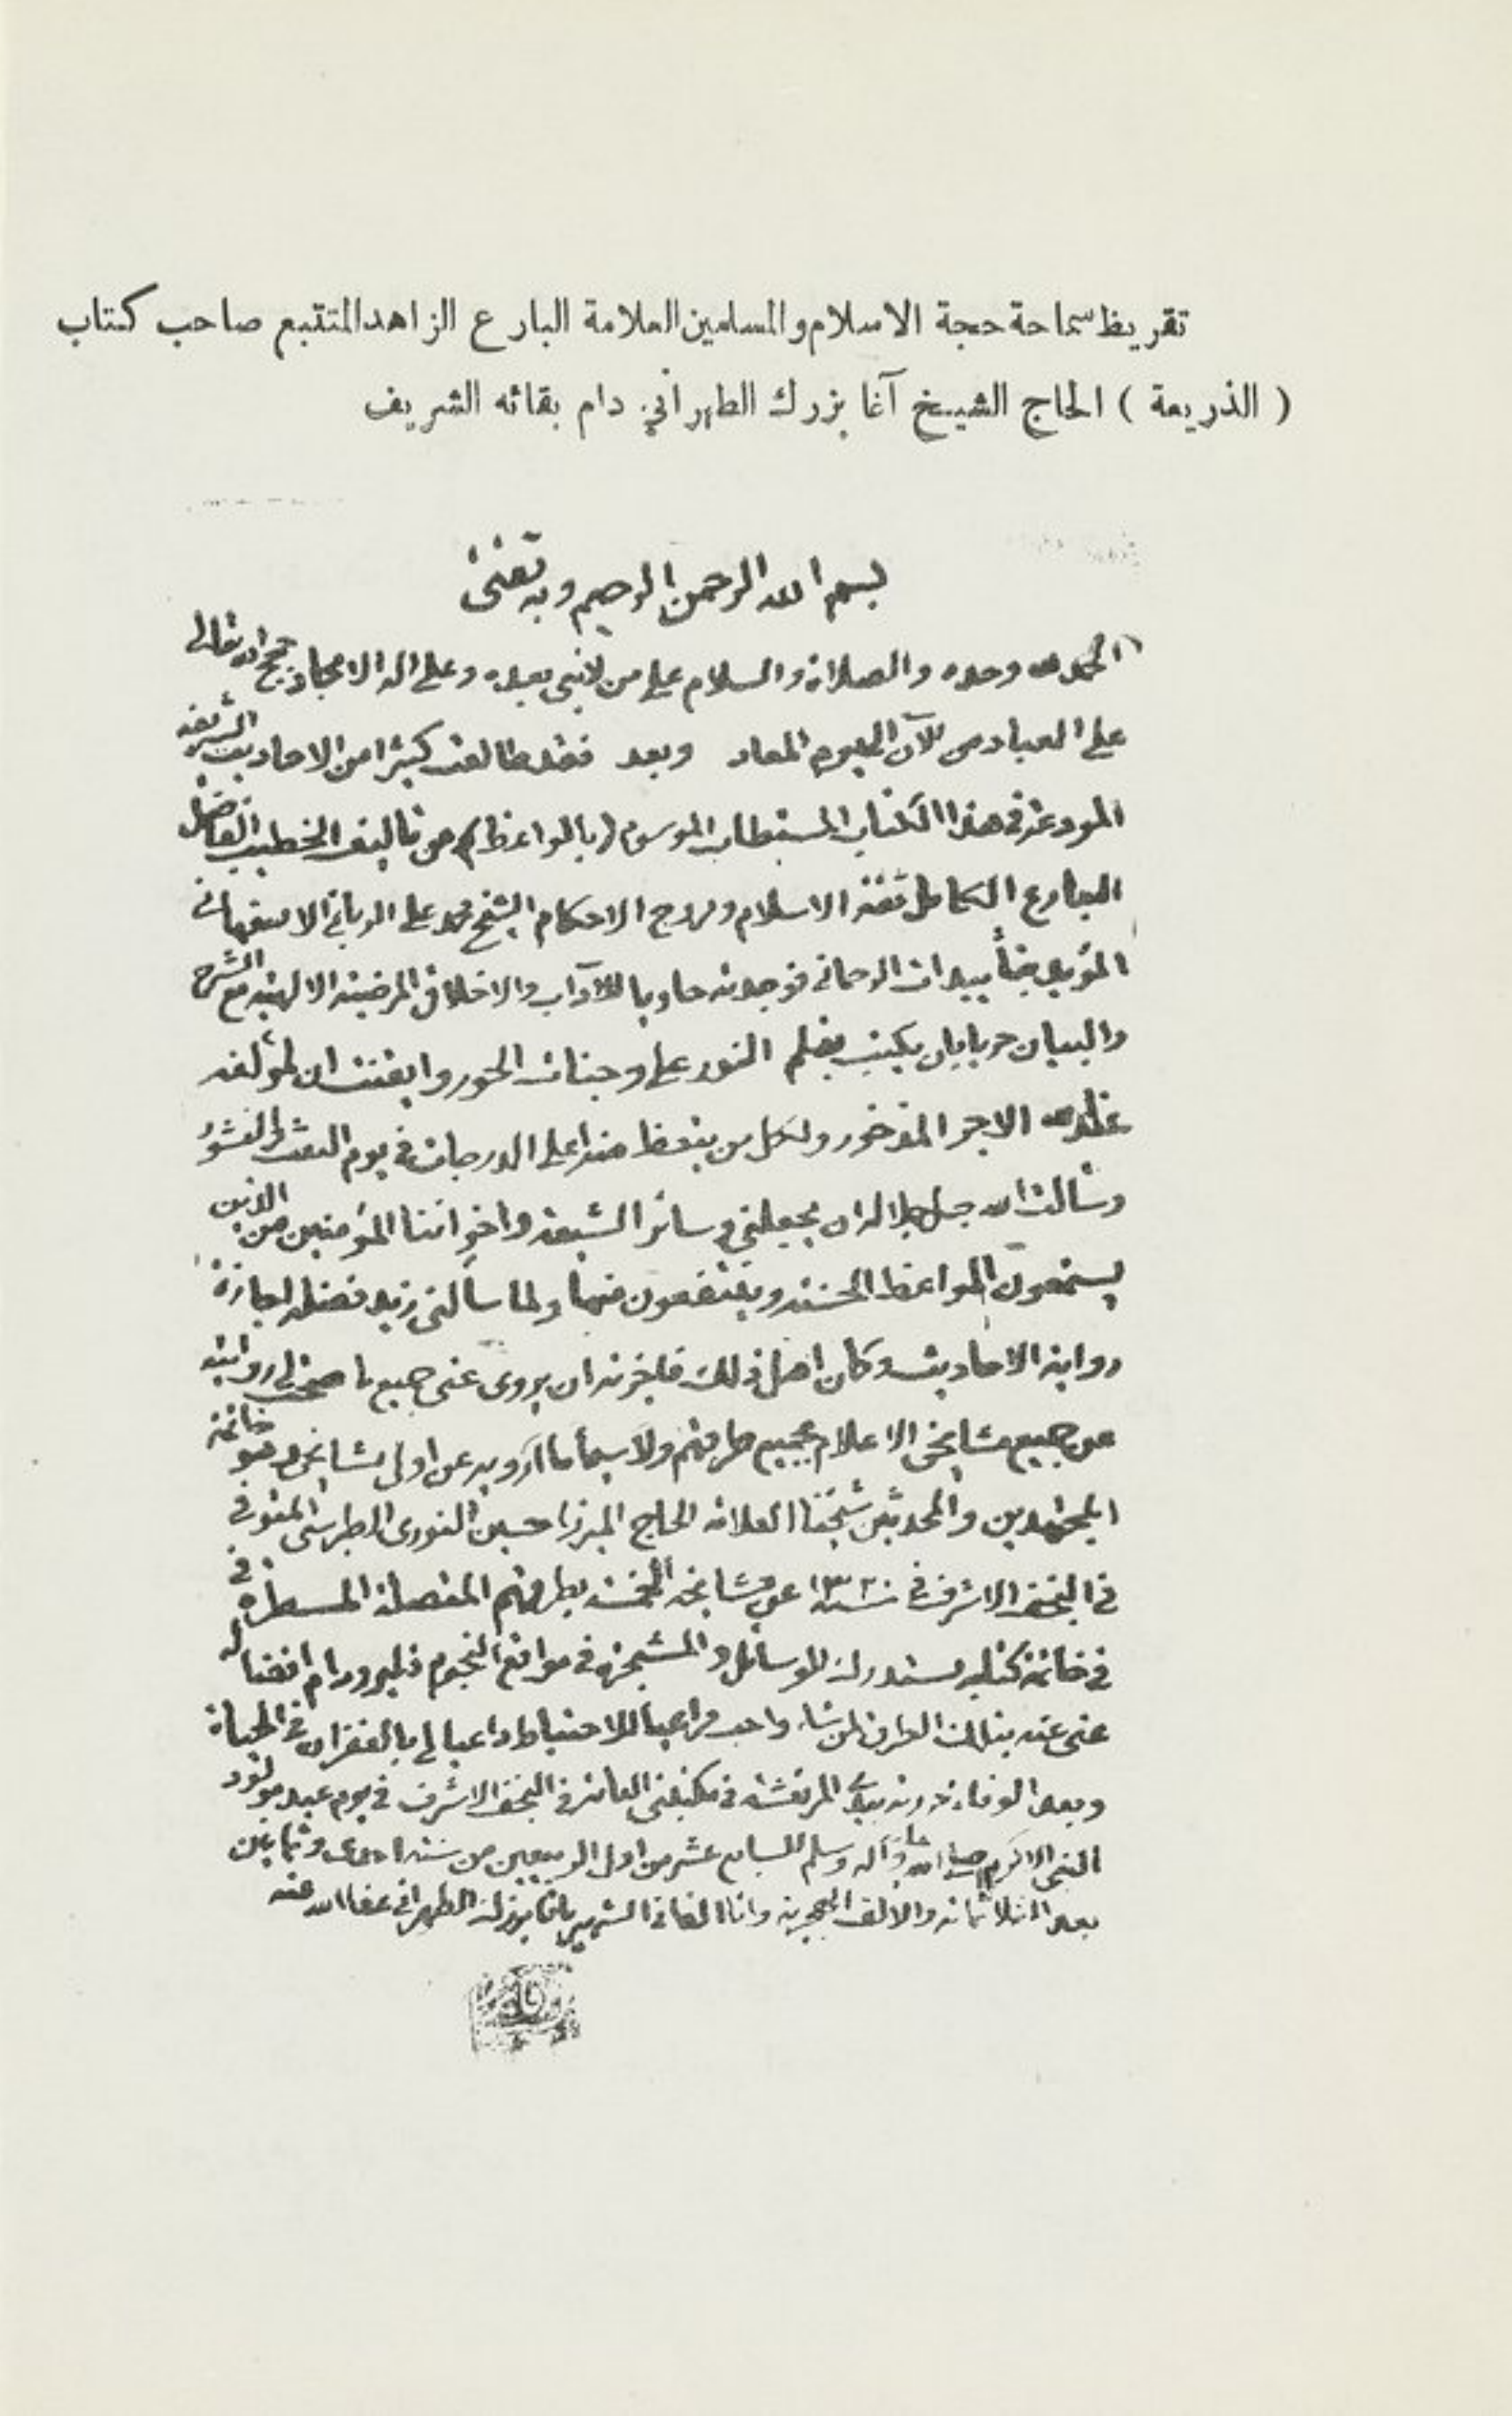 تقريظ سماحة حجة الاسلام والمسلمين العلامة البارع الزاهد المتتبع صاحب كتاب
( الذريعة ) الحاج الشيخ آغا بزرك الطهراني دام بقائه الشريف
بسم الله الرحمن الرحيم وبه ثقتى
الحمد لله وحده والصلاة والسلام على من لا نبى بعده وعلى اله الامجاد حجج الله تعالى
على العباد من الآن الى يوم المعاد وبعد فقد طالعت كثيرا من الاحاديث الشريفه
المودعة فى هذا الكتاب المستطاب الموسوم (بالمواعظ) من تاليف الخطيب الفاضل
البارع الكامل ثقة الاسلام ومروج الاحكام الشيخ محمد على الربانى الاصفهانى
المؤيد بتأييدات الرحمانى فوجدته حاويا للآداب والاخلاق المرضية الالهيه مع الشرح
والبيان حريا بان يكتب بقلم النور على وجنات الحور وايقنت ان لمؤلفه
عند الله الاجر الموفور ولكل من يتعظ منه اعلى الدرجات فى يوم البعث والنشور
وسألت الله جل جلاله ان يجعلنى وسائر الشيعه واخواننا المؤمنين من الذين
يستمعون المواعظ الحسنه وينتفعون منها ولما سألنى زيد فضله اجازة
رواية الاحاديث وكان اهل ذلك فاجزته ان يروى عنى جميع ما صح لى روايته
عن جميع مشايخى الاعلام بجميع طرقهم ولا سيما ما أرويه عن اول مشايخى وهو خاتمة
المجتهدين والمحدثين شيخنا العلامه الحاج الميرزا حسين النورى الطبرسى المتوفى
فى النجف الاشرف فى سنة ١٣٢٠ عن مشايخه الخمسة بطرقهم المفصلة المسطرة فى
فى خاتمة كتابه مستدرك الوسائل والمشجرة فى مواقع النجوم فليرو دام افضاله
عنى عنه بتلك الطرق لمن شاء واحب مراعيا للاحتياط داعيا لى بالغفران فى الحياة
وبعد الوفاة حررته بيدى المرتعشة فى مكتبتى العامة فى النجف الاشرف فى يوم عيد مولود
النبى الاكرم صلى الله عليه وآله وسلم السابع عشر من اول الربيعين من سنة احدى وثمانين
بعد الثلاثمائة والالف الهجرية وانا الفانى الشهير بآقا بزرك الطهرانى عفا الله عنه